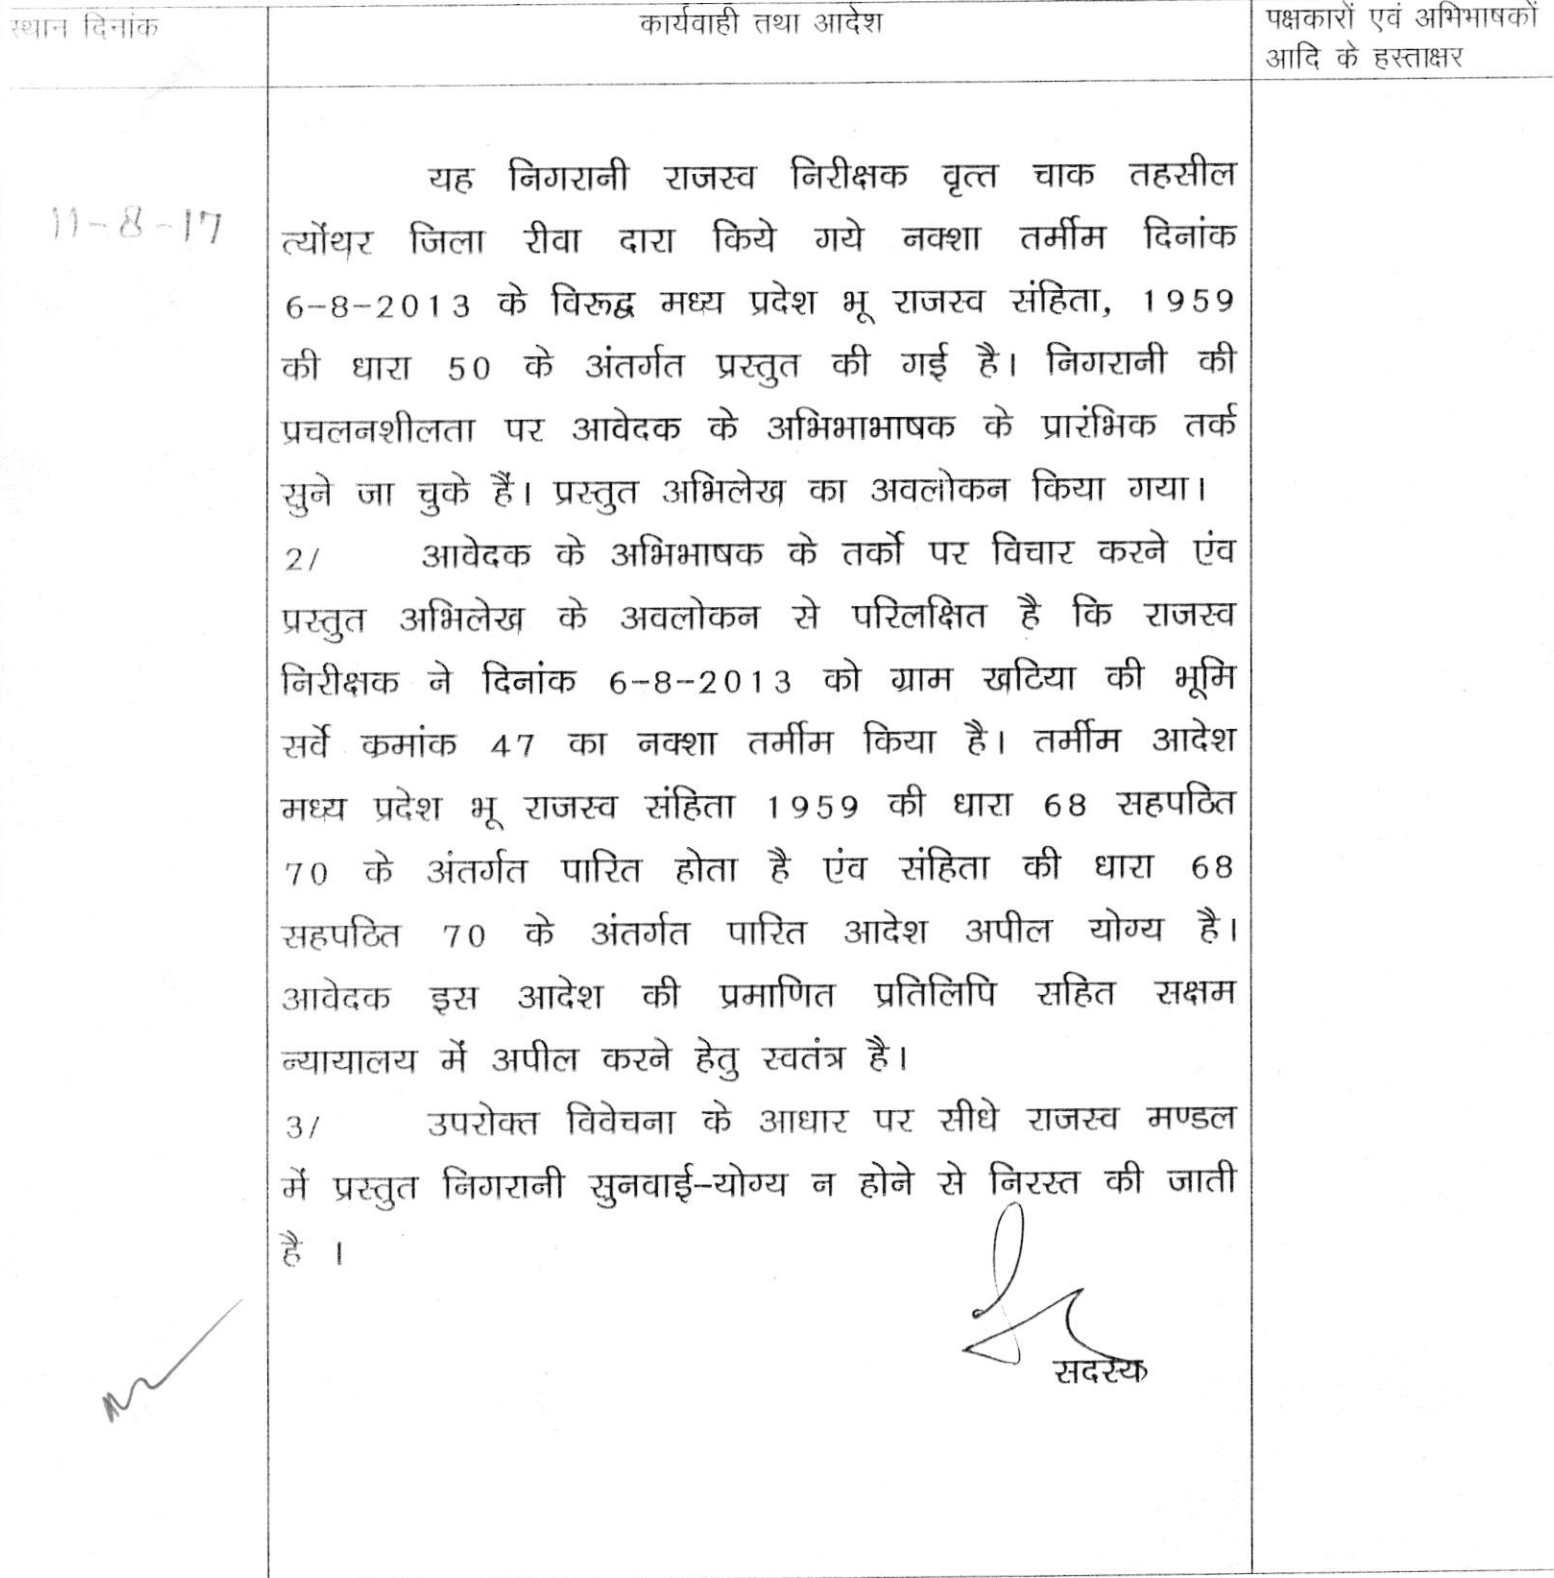 स्थान दिनांक
कार्यवाही तथा आदेश
पक्षकारों एवं अभिभाषकों
आदि के हस्ताक्षर
11-8-17
यह निगरानी राजस्व निरीक्षक वृत्त चाक तहसील
त्योंथर जिला रीवा दारा किये गये नक्शा तर्मीम दिनांक
6-8-2013 के विरूद्व मध्य प्रदेश भू राजस्व संहिता, 1959
की धारा 50 के अंतर्गत प्रस्तुत की गई है। निगरानी की
प्रचलनशीलता पर आवेदक के अभिभाभाषक के प्रारंभिक तर्क
सुने जा चुके हैं। प्रस्तुत अभिलेख का अवलोकन किया गया।
2/ आवेदक के अभिभाषक के तर्को पर विचार करने एंव
प्रस्तुत अभिलेख के अवलोकन से परिलक्षित है कि राजस्व
निरीक्षक ने दिनांक 6-8-2013 को ग्राम खटिया की भूमि
सर्वे कमांक 47 का नक्शा तर्मीम किया है। तर्मीम आदेश
मध्य प्रदेश भू राजस्व संहिता 1959 की धारा 68 सहपठित
70 के अंतर्गत पारित होता है एंव संहिता की धारा 68
सहपठित 70 के अंतर्गत पारित आदेश अपील योग्य है।
आवेदक इस आदेश की प्रमाणित प्रतिलिपि सहित सक्षम
न्यायालय में अपील करने हेतु स्वतंत्र है।
3/ उपरोक्त विवेचना के आधार पर सीधे राजस्व मण्डल
में प्रस्तुत निगरानी सुनवाई-योग्य न होने से निरस्त की जाती
है ।
सदस्य